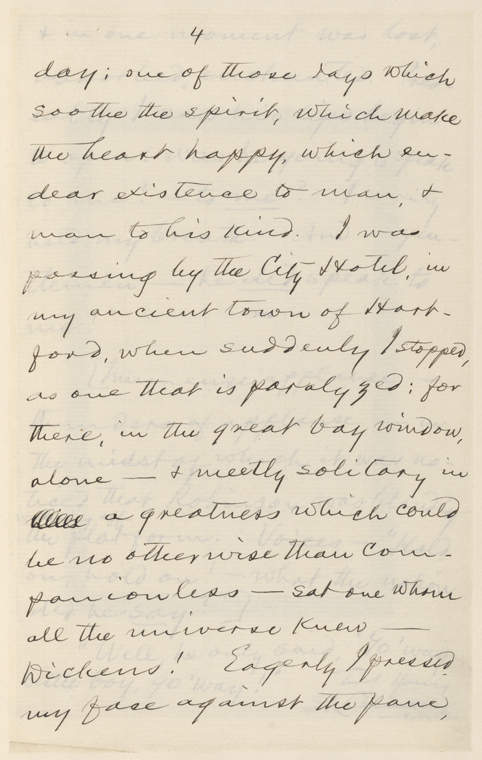 4
day; one of those days which
soothe the spirit, which make
the heart happy, which en-
dear existence to man, &
man to his kind. I was
passing by the City Hotel, in
my ancient town of Hart-
ford, when suddenly I stopped,
as one that is paralyzed; for
there, in the great bay window,
alone — & meetly solitary in
a greatness which could
be no otherwise than com-
panionless — sat one whom
all the universe knew —
Dickens! Eagerly I pressed
my face against the pane,